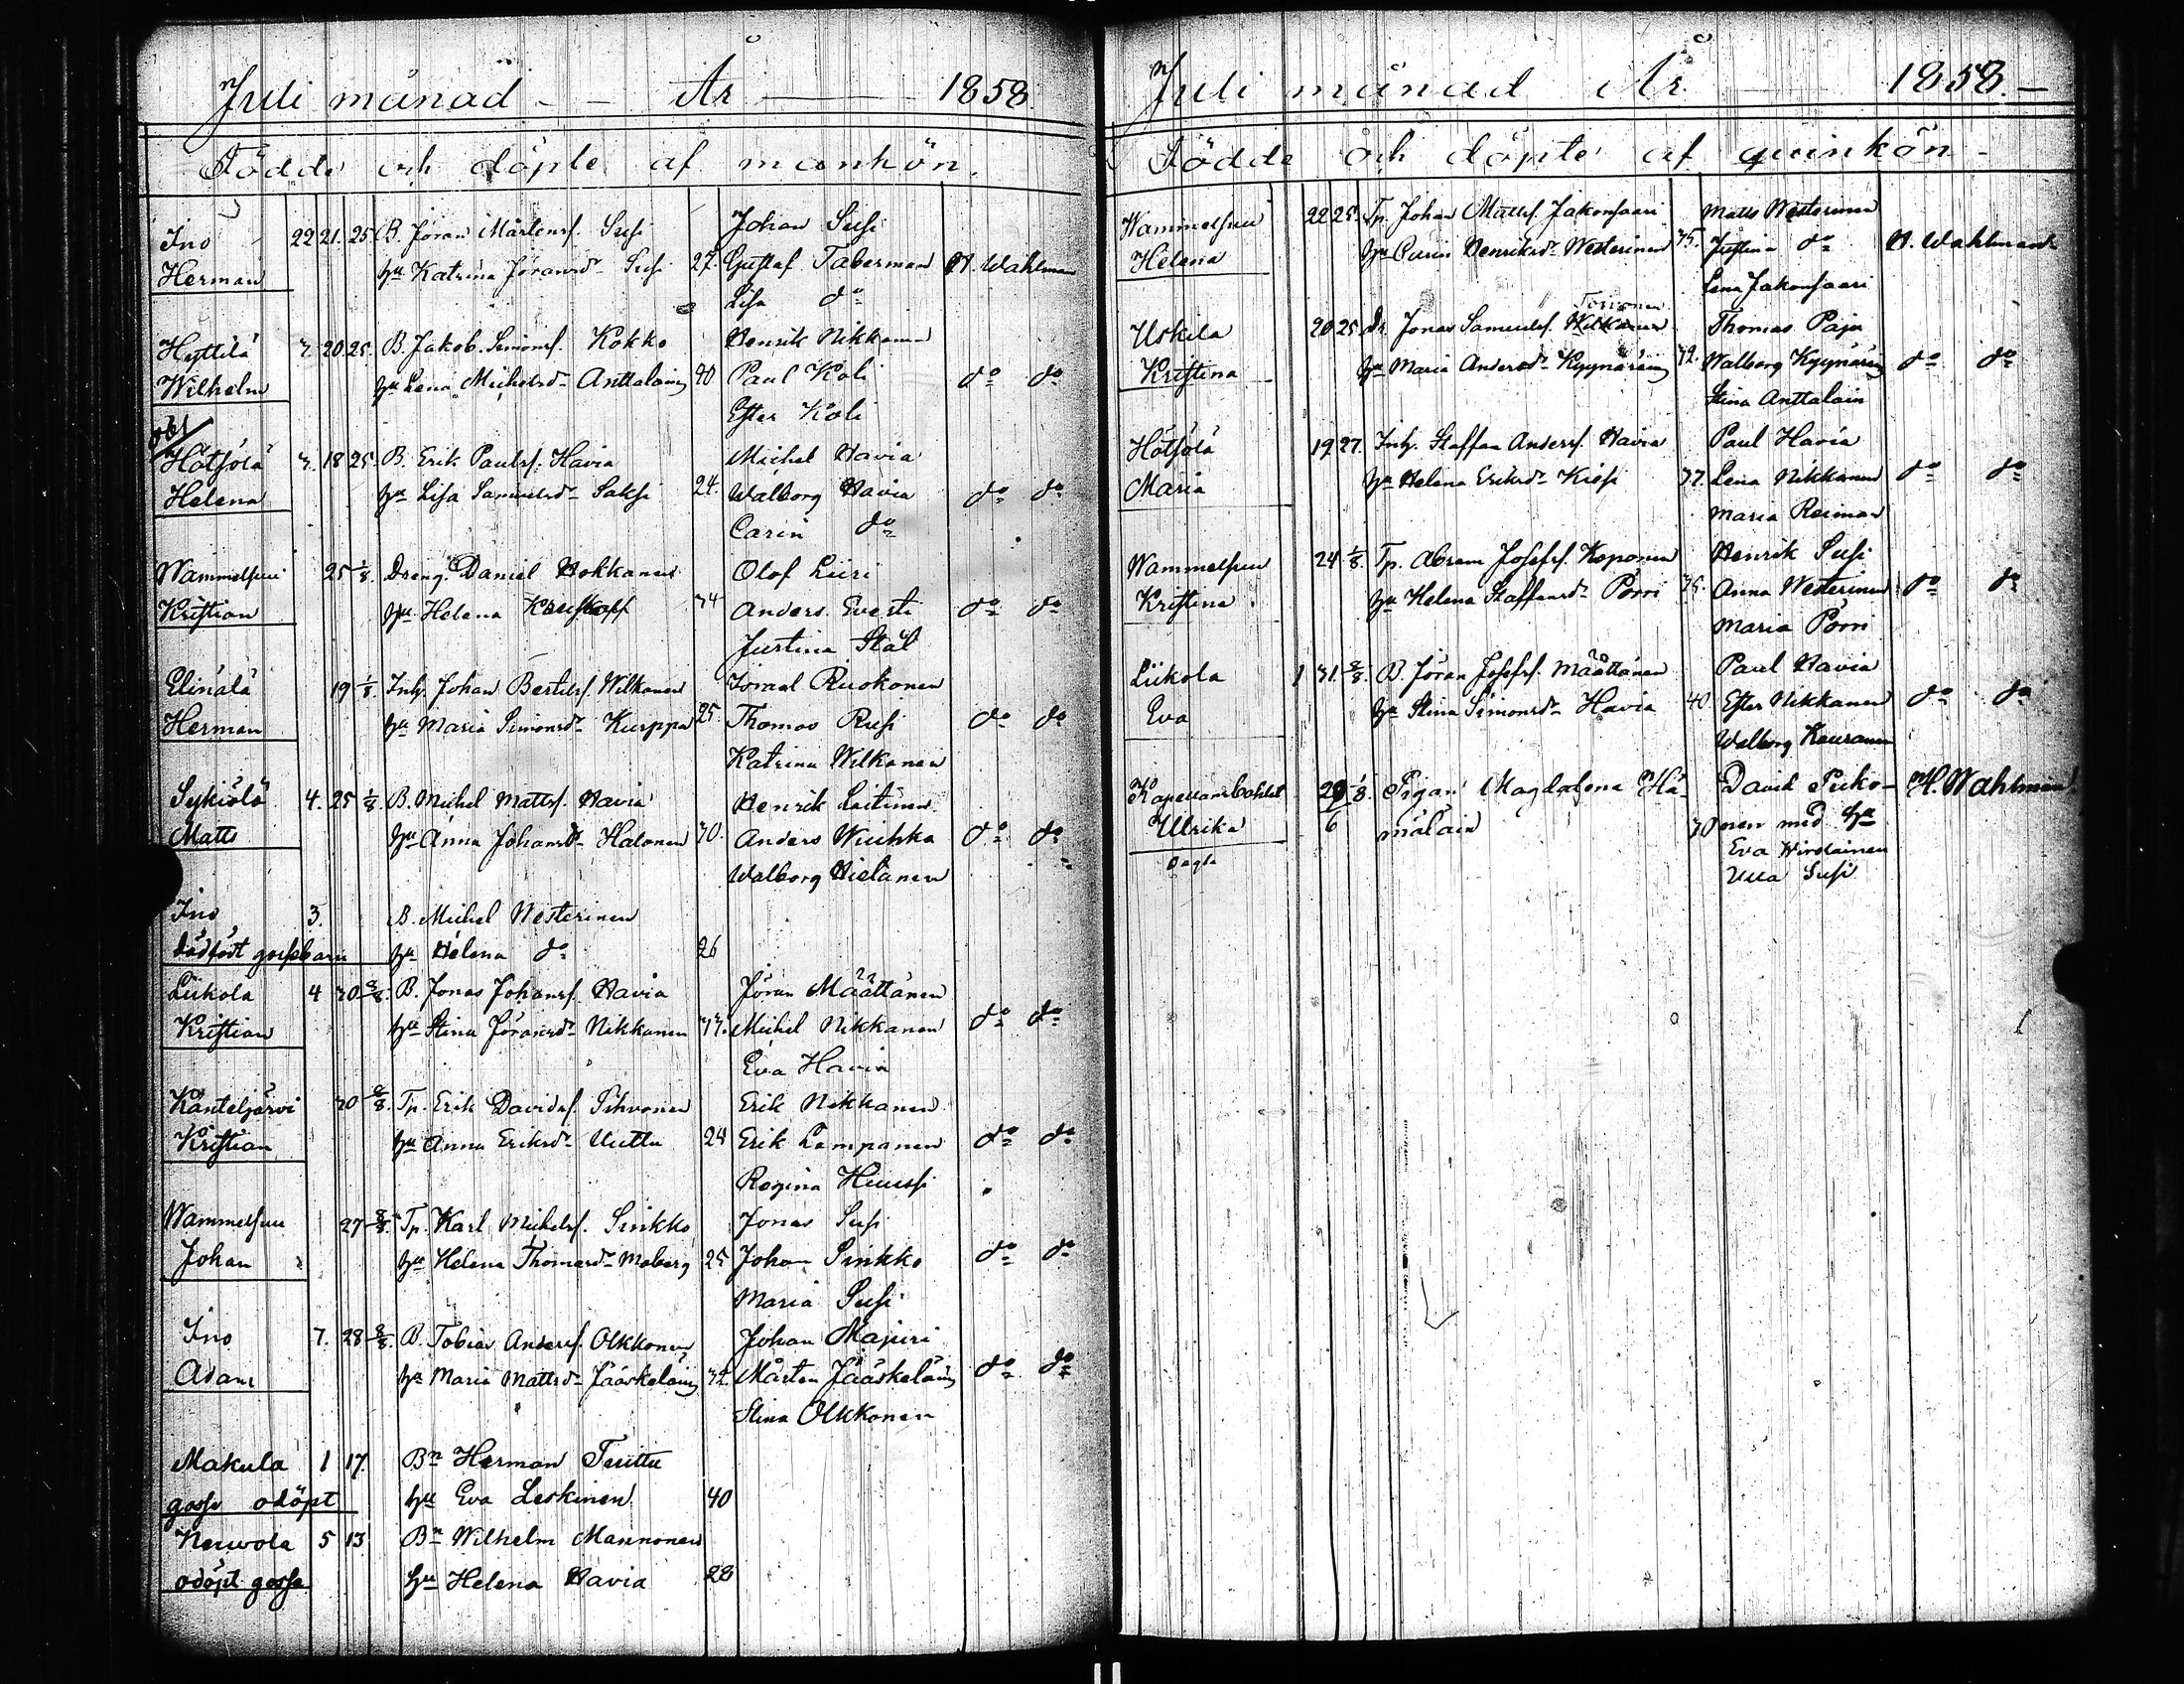 Juli månad - - År 1858.
Födde och döpte af mankön.
Ino 22 21. 25 B. Jöran Mårtensf. Susi Johan Susi
Herman hu Katrina Jöransd. Susi 27. Gustaf Taberman H. Wahlman
Lisa do
Hyttilä 3. 20 25. B. Jakob Simonsf. Kokko Henrik Nikkanen
Wilhelm hu Lena Michelsd. Anttalain 40 Paul Koli do do
Ester Koli
obs
Hötsölä 3. 18 25. B. Erik Paulsf. Havia Michel Havia
Helena hu Lisa Samuelsd. Saksi 24. Walborg Havia do do
Carin do
Wammelsuu 25 1/8. Dreng Daniel Hokkanen Olof Liiri
Kristian hu Helena Kruskopf 34 Anders Eversti do do
Justina Stål
Elinälä 19 1/8. Inh. Johan Bertelsf. Wilkanen Ismael Ruokonen
Herman hu Maria Simonsd. Kurppa 25. Thomas Rusi do do
Katrina Wilkanen
Sykiölä 4. 25 1/8. B. Michel Mattsf. Havia Henrik Laitinen
Matts hu Anna Johansd. Halonen 30. Anders Wiuhka do do
Walborg Hietanen
Ino 3. B. Michel Westerinen
dödfödt gossebarn hu Helena do 26
Liikola 4 30 8/8. B. Jonas Johansf. Havia Jöran Määttänen
Kristian hu Stina Jöransd. Nikkanen 33. Michel Nikkanen do do
Eva Havia
Känteljärvi 30 8/8. Tp. Erik Davidsf. Pihvonen Erik Nikkanen
Kristian hu Anna Eriksd. Uuttu 24 Erik Lampanen do do
Regina Huussi
Wammelsuu 27 8/8. Tp. Karl Michelsf. Sinkko Jonas Susi
Johan hu Helena Thomasd. Moberg 25 Johan Sinkko do do
Maria Susi
Ino 7. 28 8/8. B. Tobias Andersf. Olkkonen Johan Majuri
Adam hu Maria Mattsd. Jääskeläin 32. Mårten Jääskeläin do do
Stina Olkkonen
Makula 1 17. Bn Herman Tuittu
gosse odöpt hu Eva Leskinen 40
Neuvola 5 13 Bn Wilhelm Mannonen
odöpt gosse hu Helena Havia 28
Juli månad År 1858.
Födde och döpte af quinkön
Wammelsuu 22 25. Tp. Johan Mattsf. Jakonsaari Matts Westerinen
Helena hu Carin Henriksd. Westerinen 35. Justina do H. Wahlman
Lena Jakonsaari
Uskila 20 25 Dr. Jonas Samuelsf. Toivonen Thomas Paju
Kristina hu Maria Andersd. Kyynäräin 32. Walborg Kyynäräin do do
Stina Anttalain
Hötsölä 19 27. Inh. Staffan Andersf. Havia Paul Havia
Maria hu Helena Eriksd. Kiesi 37. Lena Nikkanen do do
Maria Reiman
Wammelsuu 24 1/8. Tp. Abram Josefsf. Koponen Henrik Susi
Kristina hu Helena Staffansd. Pörri 35. Anna Westerinen do do
Maria Pörri
Liikola 1 31. 8/8. B. Jöran Josefsf. Määttänen Paul Havia
Eva hu Stina Simonsd. Havia 40 Ester Nikkanen do do
Walborg Kauranen
Kapellansbohlet 29 1/8. Pigan Magdalena Hä- David Peiko- H. Wahlman
Ulrika 6 mäläin 30 nen med hu
oägta Eva Hirdainen
Ulla Susi